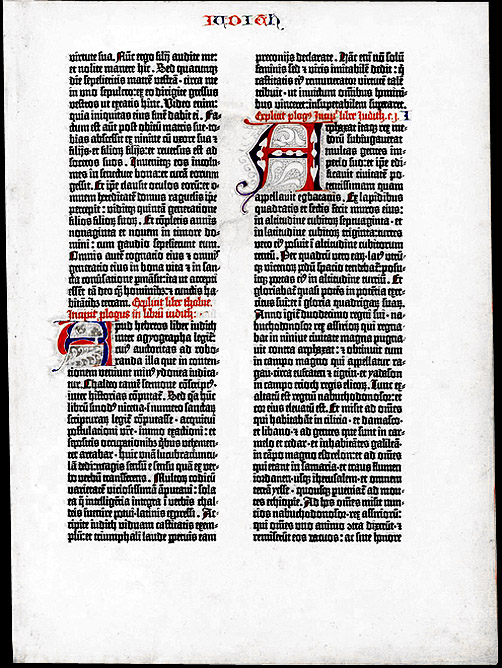 IUDITH
virtute sua. Nūc ergo filij audite me:
et nolite manere hic. Sed quacunq;
die sepelieritis matrē vestrā · circa me
in uno sepulcro: ex eo dirigite gressus
vestros ut exeatis hinc. Video enim:
quia iniquitas eius finē dabit ei. Fa-
ctum est aūt post obitū matris sue: to-
bias abscessit ex ninive cū uxore sua et
filijs · et filiorū filijs: et reversus est ad
soceros suos. Invenitq; eos incolu-
mes in senectute bona: et curā eorum
gessit. Et ip̄e clausit oculos eorū: et o-
mnem hereditatē domus raguelis ip̄e
percepit: viditq; quintā generationē
filios filiorū suorū. Et cōpletis annis
nonaginta et novem in timore do-
mini: cum gaudio sepelierunt eum.
Omnis autē cognatio eius et omnis
generatio eius in bona vita et in san-
cta cōversatione pmāsit: ita ut accepti
essēt tā deo q̄ hominib; et cunctis ha-
bitātib; terram. Explicit liber thobie.
Incipit plogus in librū iudith:
Apud hebreos liber iudith
inter agyographa legit̄:
cuius auctoritas ad robo-
randa illa que in conten-
tionem veniunt min9 ydonea iudica-
tur. Chaldeo tamē sermone cōscript9
inter historias cōputat̄. Sed q̄a hūc
librū sinod9 nicena ī numero sanctarū
scripturarū legit̄ cōputasse · acquievi
postulationi vr̄e · immo exactioni: et
sepositis occupationib; q̄bus vehemen-
ter artabar · huic unā lucubratiuncu-
lā dedi: magis sensū e sensu quā ex ver-
bo verbū transferens. Multorū codicū
varietatē viciosissimā āputavi: sola
ea q̄ intelligētia integra ī verbis chal-
deis invenire potui · latinis expressi. Ac-
cipite iudith viduam castitatis exem-
plū: et triumphali laude ppetuis eam
preconijs declarate. Hāc enī nō solū
feminis sed et viris imitabilē dedit: q̄
castitatis ei9 remunerator virtutē talē
tribuit · ut invictum omnibus homini-
bus vinceret: insupabilem supararet.
Explicit plog9 Incip̄ liber Iudith. c. I
Arphaxat itaq; rex me-
dorū subiugaverat
multas gentes im-
perio suo: et ip̄e edi-
ficavit civitatē po-
tentissimam quam
appellavit egbathanis. Ex lapidibus
quadratis et sectis fecit muros eius:
in altitudine cubitorū septuaginta · et
in latitudine cubitorū triginta: turres
vero ei9 posuit ī altitudine cubitorum
centū. Per quadrū vero earū · lat9 utrū-
q; vicenorū pedū spacio tendebat̄: posu-
itq; portas ei9 in altitudine turriū. Et
gloriabat̄ quasi potēs in potētia exer-
citus sui: et ī gloria quadrigarū suarū.
Anno igit̄ duodecimo regni sui · na-
buchodonosor rex assirior qui regna-
bat in ninive civitate magna pugna-
vit contra arphaxat: et obtinuit eum
in campo magno qui appellatur ra-
gau · circa eufraten et tigrin · et yadason
in campo erioch regis elicorū. Tunc ex-
altatū est regnū nabuchodonosor: et
cor eius elevatū est. Et misit ad omēs
qui habitabāt in cilicia · et damasco ·
et libano · et ad gentes que sunt in car-
melo et cedar · et inhabitātes galileā
in cāpo magno esdrelon: et ad om̄es
qui erant in samaria · et trans flumen
iordanen · usq; iherusalem · et omnem
terrā yesse · quousq; pveniat̄ ad mon-
tes ethiopie. Ad hos om̄es misit nun-
cios nabuchodonosor · rex assiriorū:
qui om̄es uno animo cōtradixerūt · et
remiserūt eos vacuos: ac sine honore